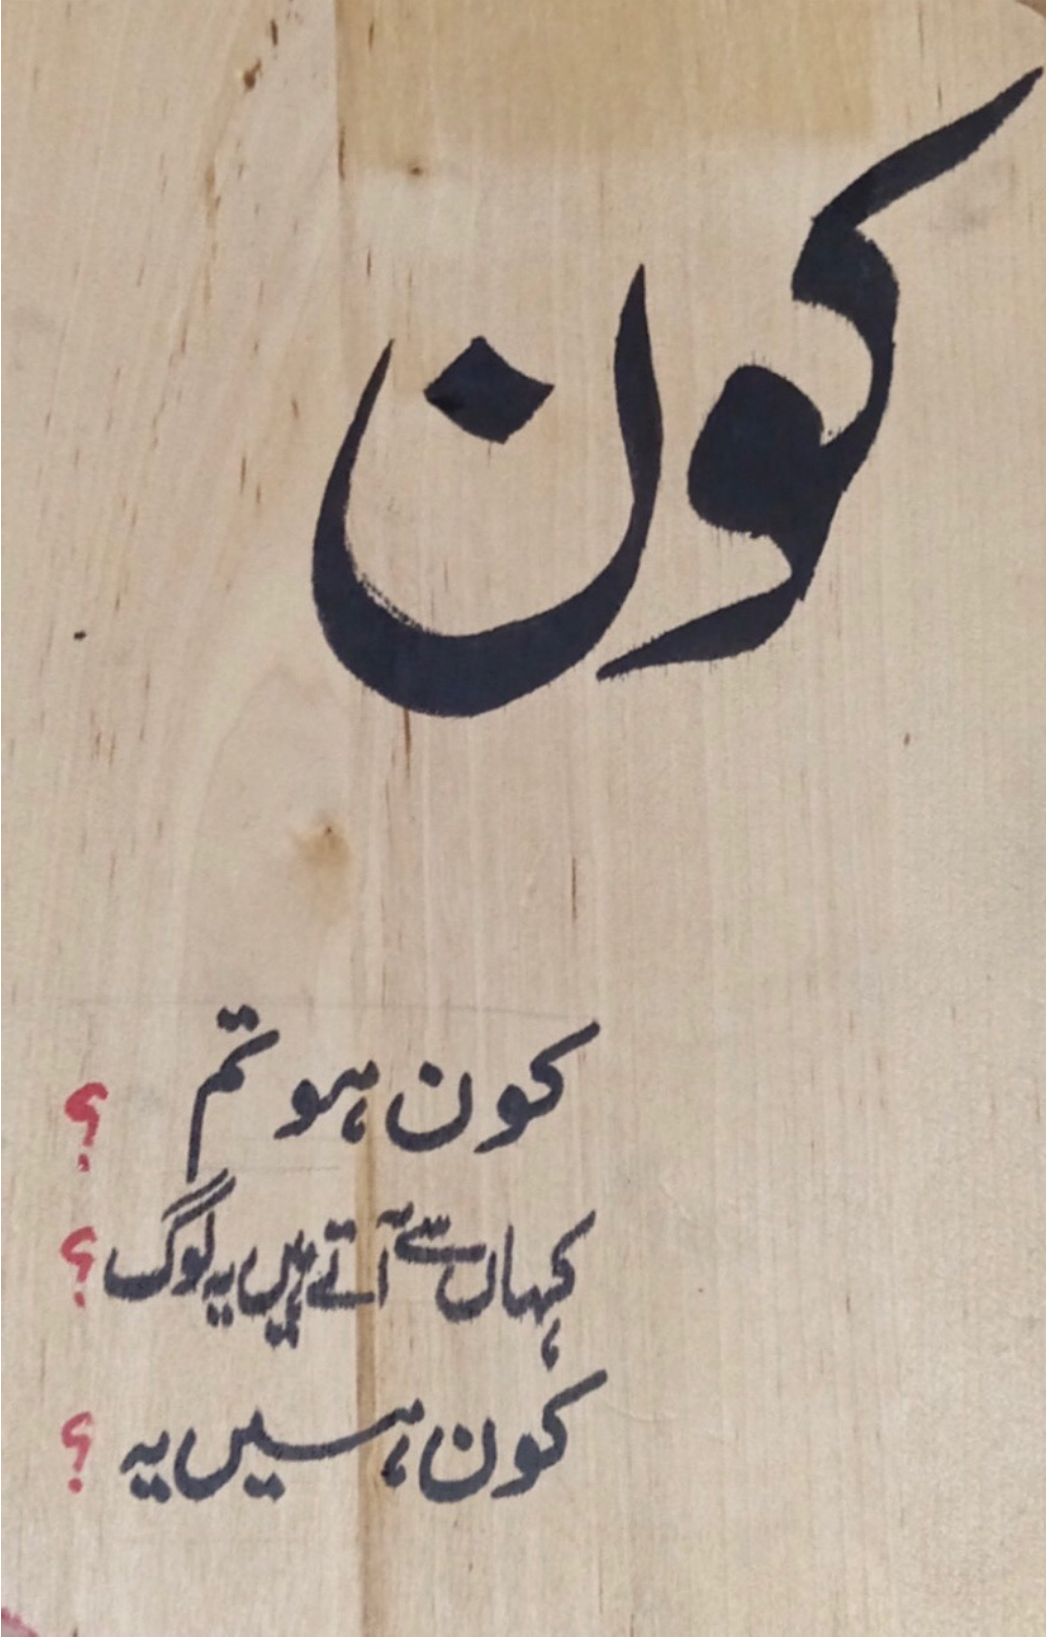 کون
کون ہو تم ؟
کہاں سے آتے ہیں یہ لوگ ؟
کون ہیں یہ ؟